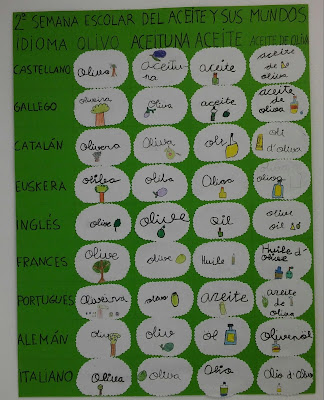 2ª SEMANA ESCOLAR DEL ACEITE Y SUS MUNDOS
IDIOMA OLIVO ACEITUNA ACEITE ACEITE DE OLIVA
CASTELLANO olivo aceitu-
na aceite aceite
de
oliva
GALLEGO oliveira oliva aceite aceite
de
oliva
CATALÁN olivera oliva oli oli
d'oliva
EUSKERA oliba
INGLÉS olive olive oil olive
oil
FRANCES olive olive Huile Huile d-
olive
PORTUGUES Oliveira aceite aceite
de
oliva
ALEMÁN oliv ol olivenöl
ITALIANO Olivo Oliva Olio Olio d'Oliva